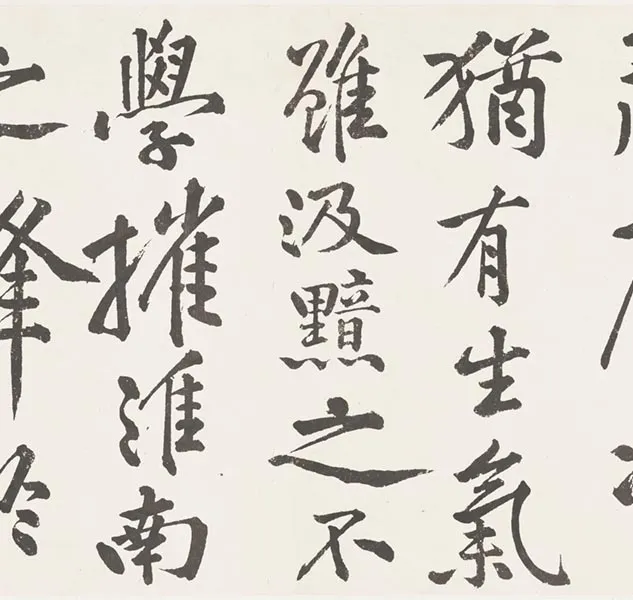 猶有生氣
雖汲黯之不
學摧淮南
之